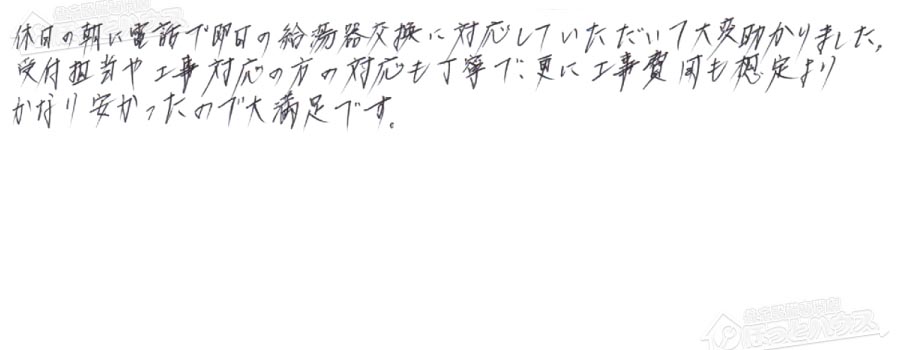 休日の朝に電話で即日の給湯器交換に対応していただいて大変助かりました。
受付担当や工事対応の方の対応も丁寧で、更に工事費用も想定より
かなり安かったので大満足です。
ほっとハウス